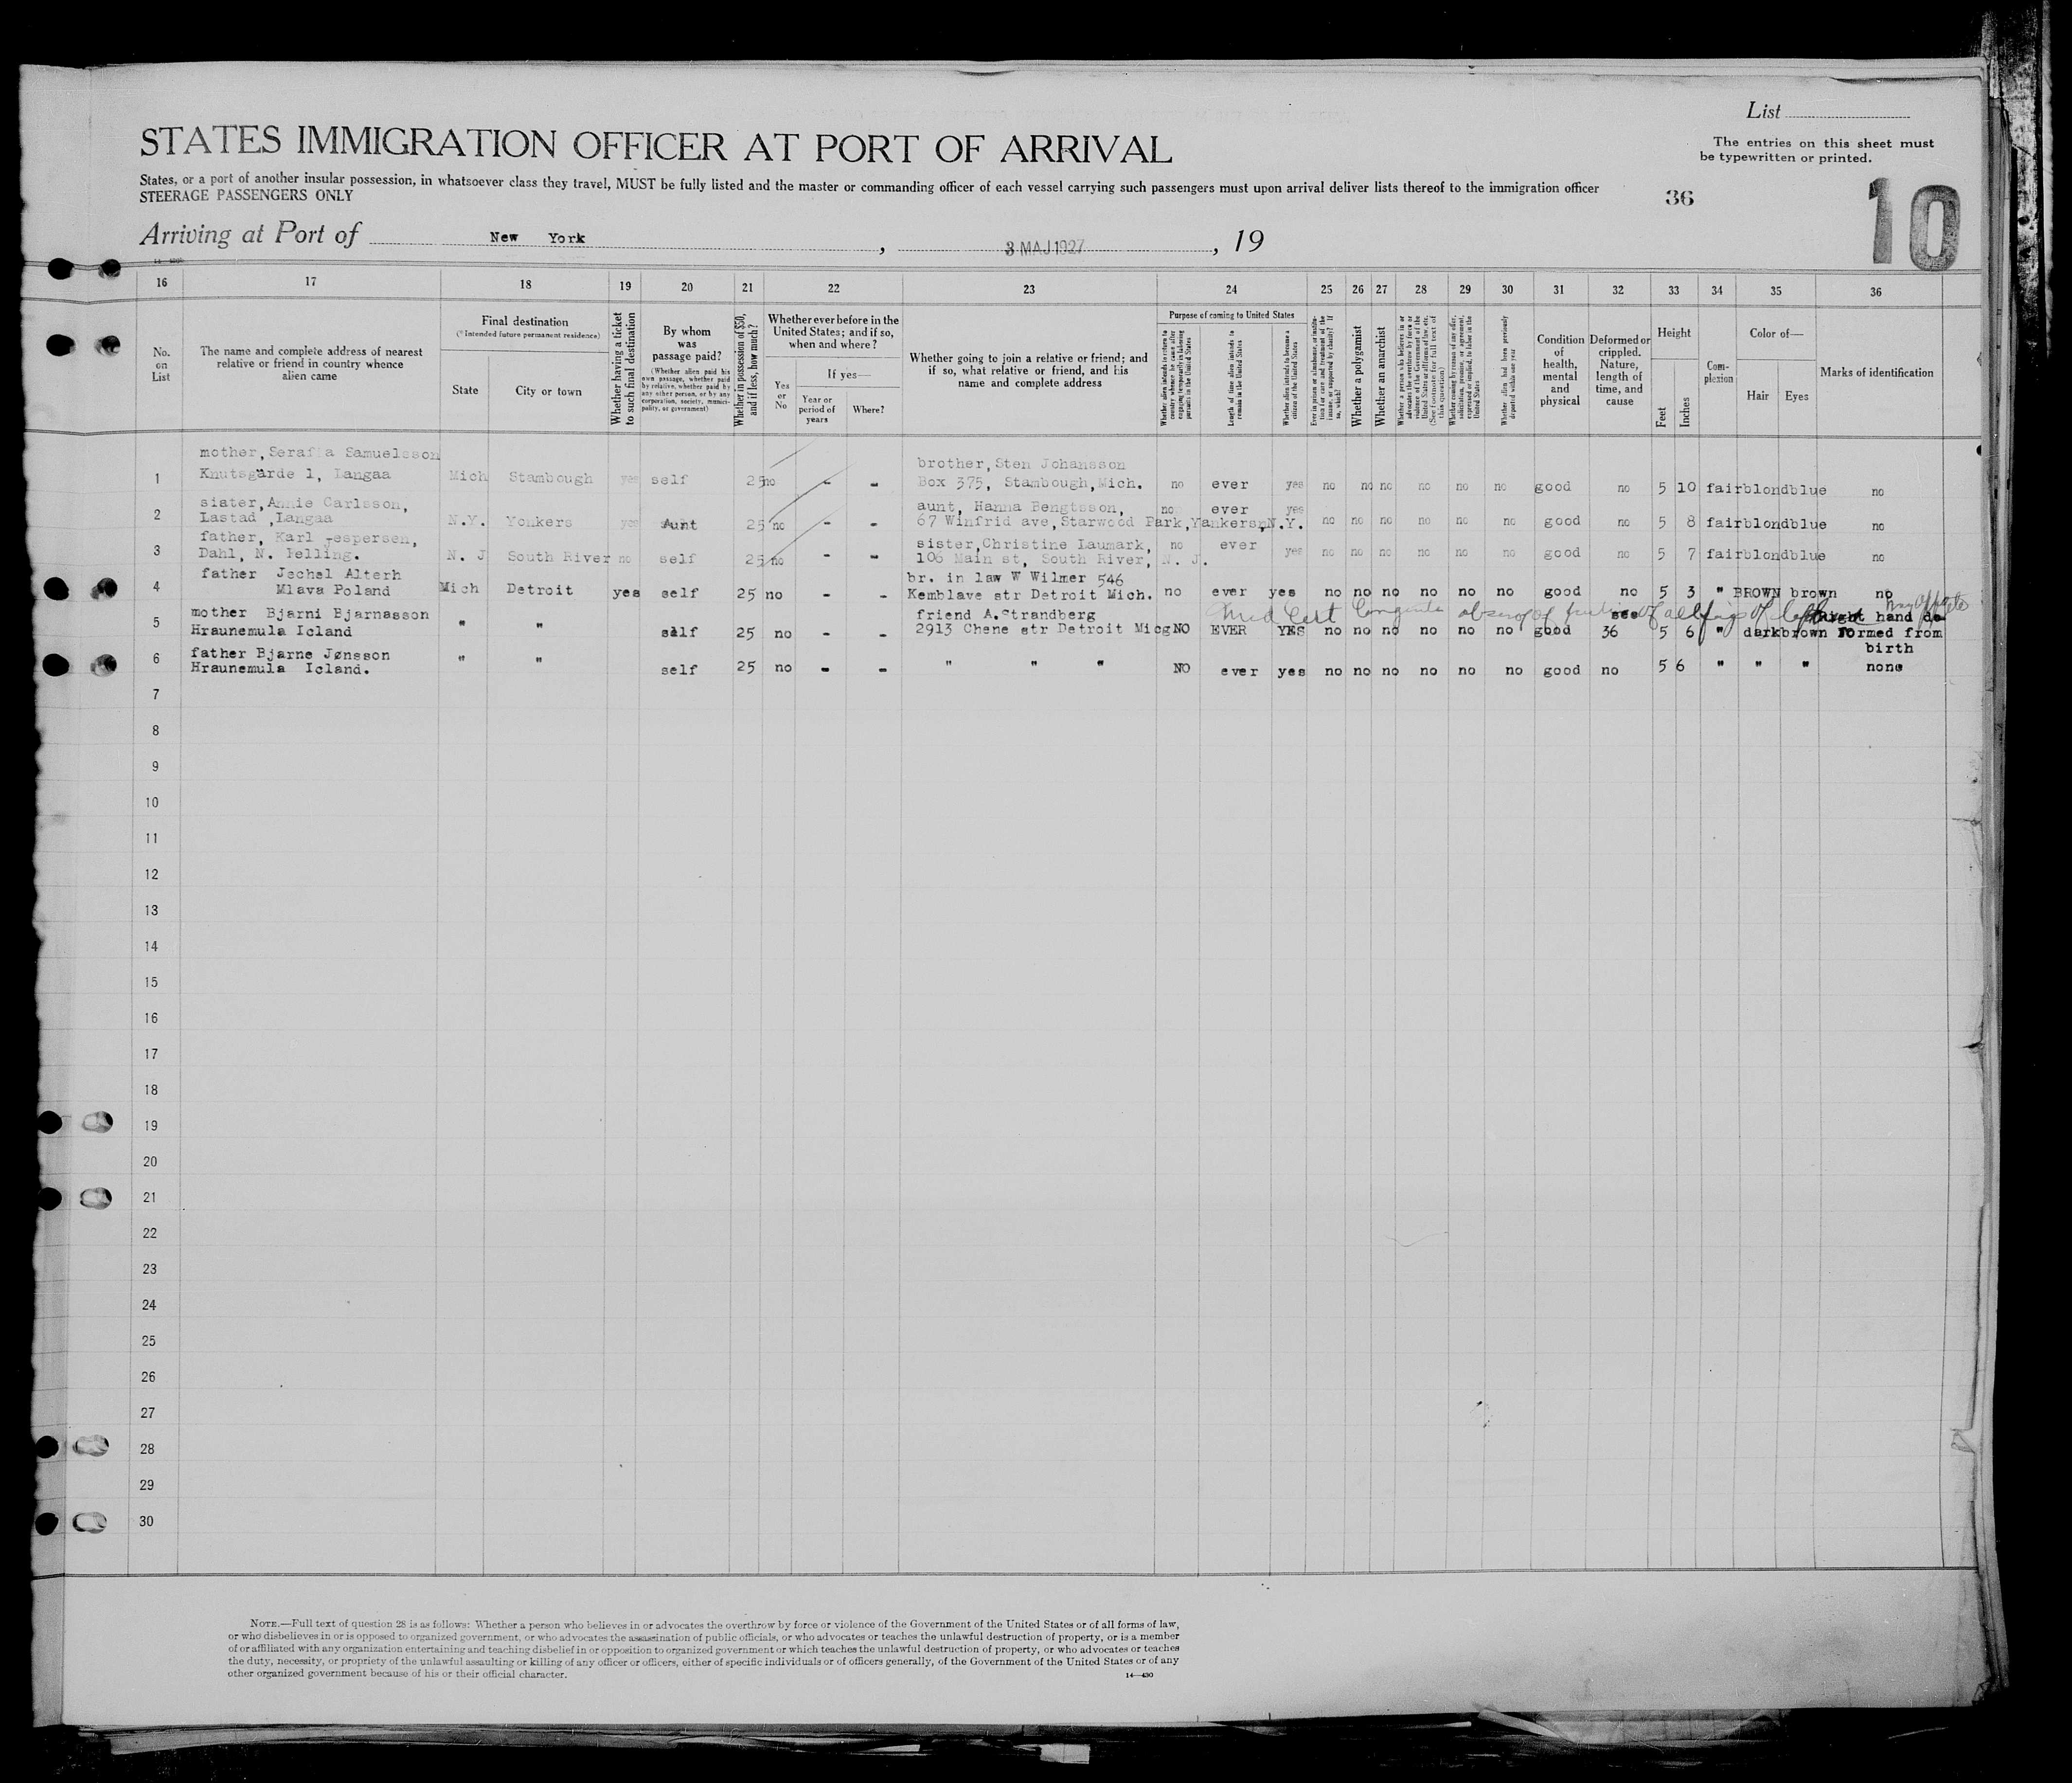 List
The entries on this sheet must
be typewritten or printed.
STATES IMMIGRATION OFFICER AT PORT OF ARRIVAL
States, or a port of another insular possession, in whatsoever class they travel, MUST be fully listed and the master or commanding officer of each vessel carrying such passengers must upon arrival deliver lists thereof to the immigration officer
STEERAGE PASSENGERS ONLY
36
10
Arriving at Port of New York , 3 MAJ 1927 , 19
16 17 18 19 20 21 22 23 24 25 26 27 28 29 30 31 32 33 34 35 36
No. on List
The name and complete address of nearest relative or friend in country whence alien came
Final destination
(*Intended future permanent residence)
State
City or town
Whether having a ticket to such final destination
By whom was passage paid?
(Whether alien paid his own passage, whether paid by relative, whether paid by any other person, or by any corporation, society, municipality, or government)
Whether in possession of $50, and if less, how much?
Whether ever before in the United States; and if so, when and where?
Yes or No
If yes—
Year or period of years
Where?
Whether going to join a relative or friend; and if so, what relative or friend, and his name and complete address
Purpose of coming to United States
Whether alien intends to return to country whence he came after engaging temporarily in laboring pursuits in the United States
Length of time alien intends to remain in the United States
Whether alien intends to become a citizen of the United States
Ever in prison or almshouse, or institution for care and treatment of the insane, or supported by charity? If so, which?
Whether a polygamist
Whether an anarchist
Whether a person who believes in or advocates the overthrow by force or violence of the Government of the United States or all forms of law, etc. (See footnote for full text of this question)
Whether coming by reason of any offer, solicitation, promise, or agreement, expressed or implied, to labor in the United States
Whether alien had been previously deported within one year
Condition of health, mental and physical
Deformed or crippled. Nature, length of time, and cause
Height
Feet
Inches
Complexion
Color of—
Hair
Eyes
Marks of identification
mother, Serafia Samuelsson brother, Sten Johansson
1 Knutsgärde 1, Langaa Mich Stambough yes self 25 no - - Box 375, Stambough, Mich. no ever yes no no no no no no good no 5 10 fair blond blue no
sister, Annie Carlsson, aunt, Hanna Bengtsson, no ever yes
2 Lastad, Langaa N.Y. Yonkers yes Aunt 25 no - - 67 Winfrid ave, Starwood Park, Yankers, N.Y. no no no no no no good no 5 8 fair blond blue no
father, Karl Jespersen, sister, Christine Laumark, no ever
3 Dahl, N. Felling. N. J South River no self 25 no - - 106 Main st, South River, N. J. yes no no no no no no good no 5 7 fair blond blue no
father Jechel Alterh br. in law W Wilmer 546
4 Mlava Poland Mich Detroit yes self 25 no - - Kemblave str Detroit Mich. no ever yes no no no no no no good no 5 3 " BROWN brown no
mother Bjarni Bjarnasson friend A. Strandberg Med Cert absence of of all of left see Right hand de
5 Hraunemula Icland " " self 25 no - - 2913 Chene str Detroit Micg NO EVER YES no no no no no no good 36 5 6 " dark brown formed from
birth
father Bjarne Jønsson
6 Hraunemula Icland. " " self 25 no - - " " " NO ever yes no no no no no no good no 5 6 " " " none
7
8
9
10
11
12
13
14
15
16
17
18
19
20
21
22
23
24
25
26
27
28
29
30
NOTE.—Full text of question 28 is as follows: Whether a person who believes in or advocates the overthrow by force or violence of the Government of the United States or of all forms of law,
or who disbelieves in or is opposed to organized government, or who advocates the assassination of public officials, or who advocates or teaches the unlawful destruction of property, or is a member
of or affiliated with any organization entertaining and teaching disbelief in or opposition to organized government or which teaches the unlawful destruction of property, or who advocates or teaches
the duty, necessity, or propriety of the unlawful assaulting or killing of any officer or officers, either of specific individuals or of officers generally, of the Government of the United States or of any
other organized government because of his or their official character.
14—430